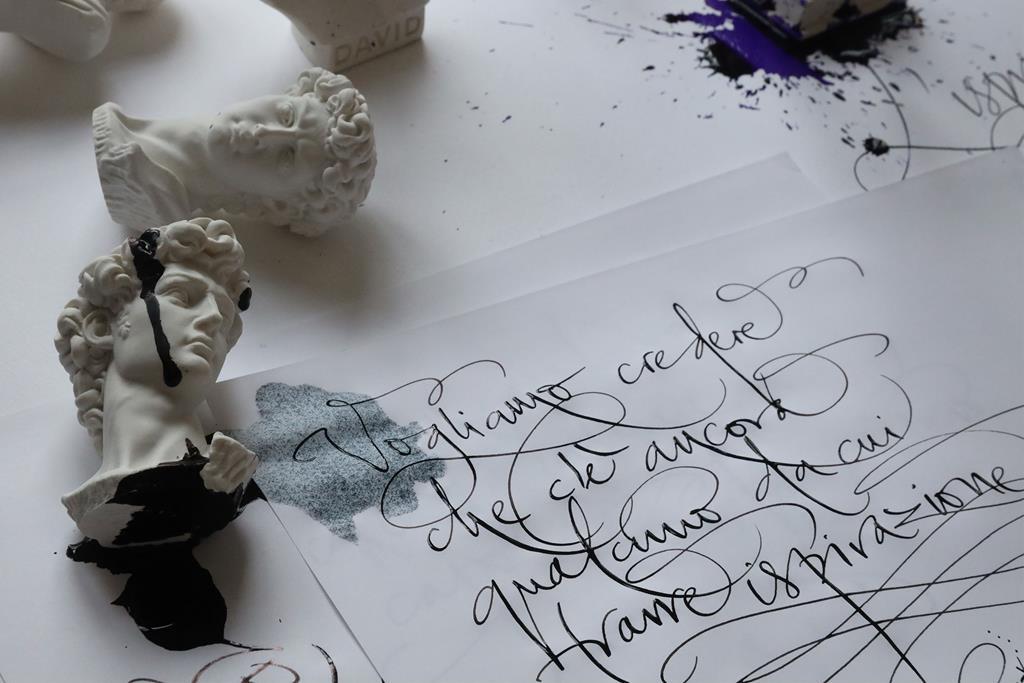 DAVID
Vogliamo credere
che c'è ancora
qualcuno da cui
trarre ispirazione